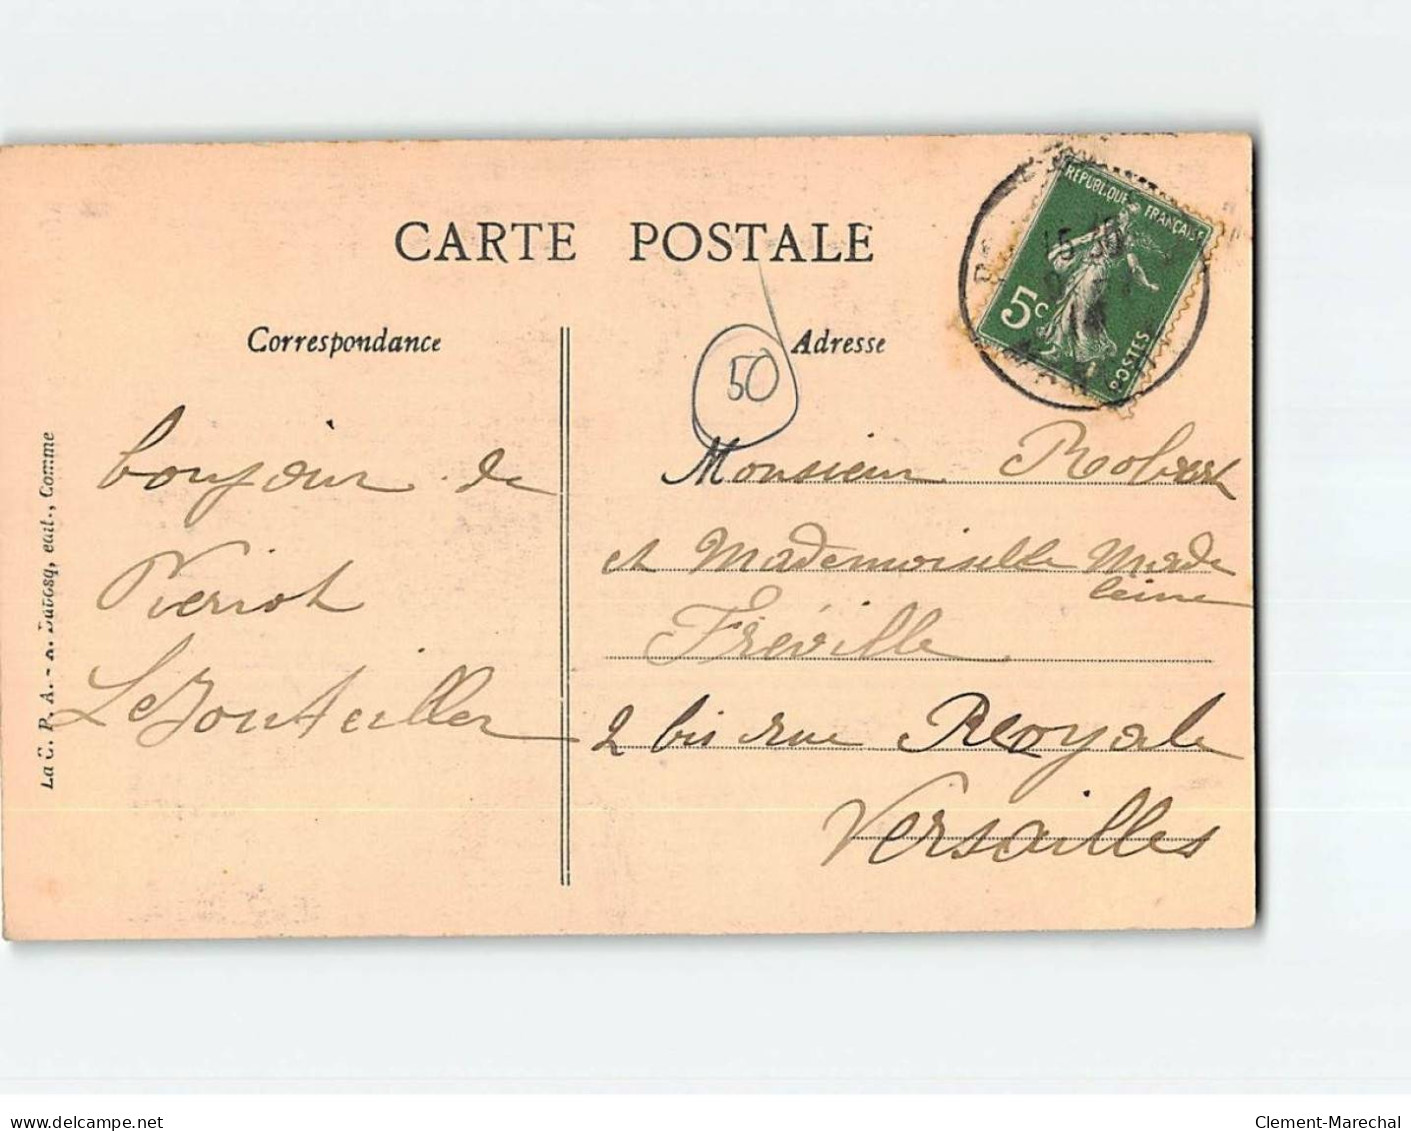 CARTE POSTALE
Correspondance
Adresse
RÉPUBLIQUE FRANÇAISE
5c
POSTES
50
bonjour de
Pierrot
Le Bouteiller
Monsieur Robert
et Mademoiselle Made
leine
Fréville
2 bis rue Royale
Versailles
La C. P. A. - édit., Comme
delcampe.net
Clement-Marechal